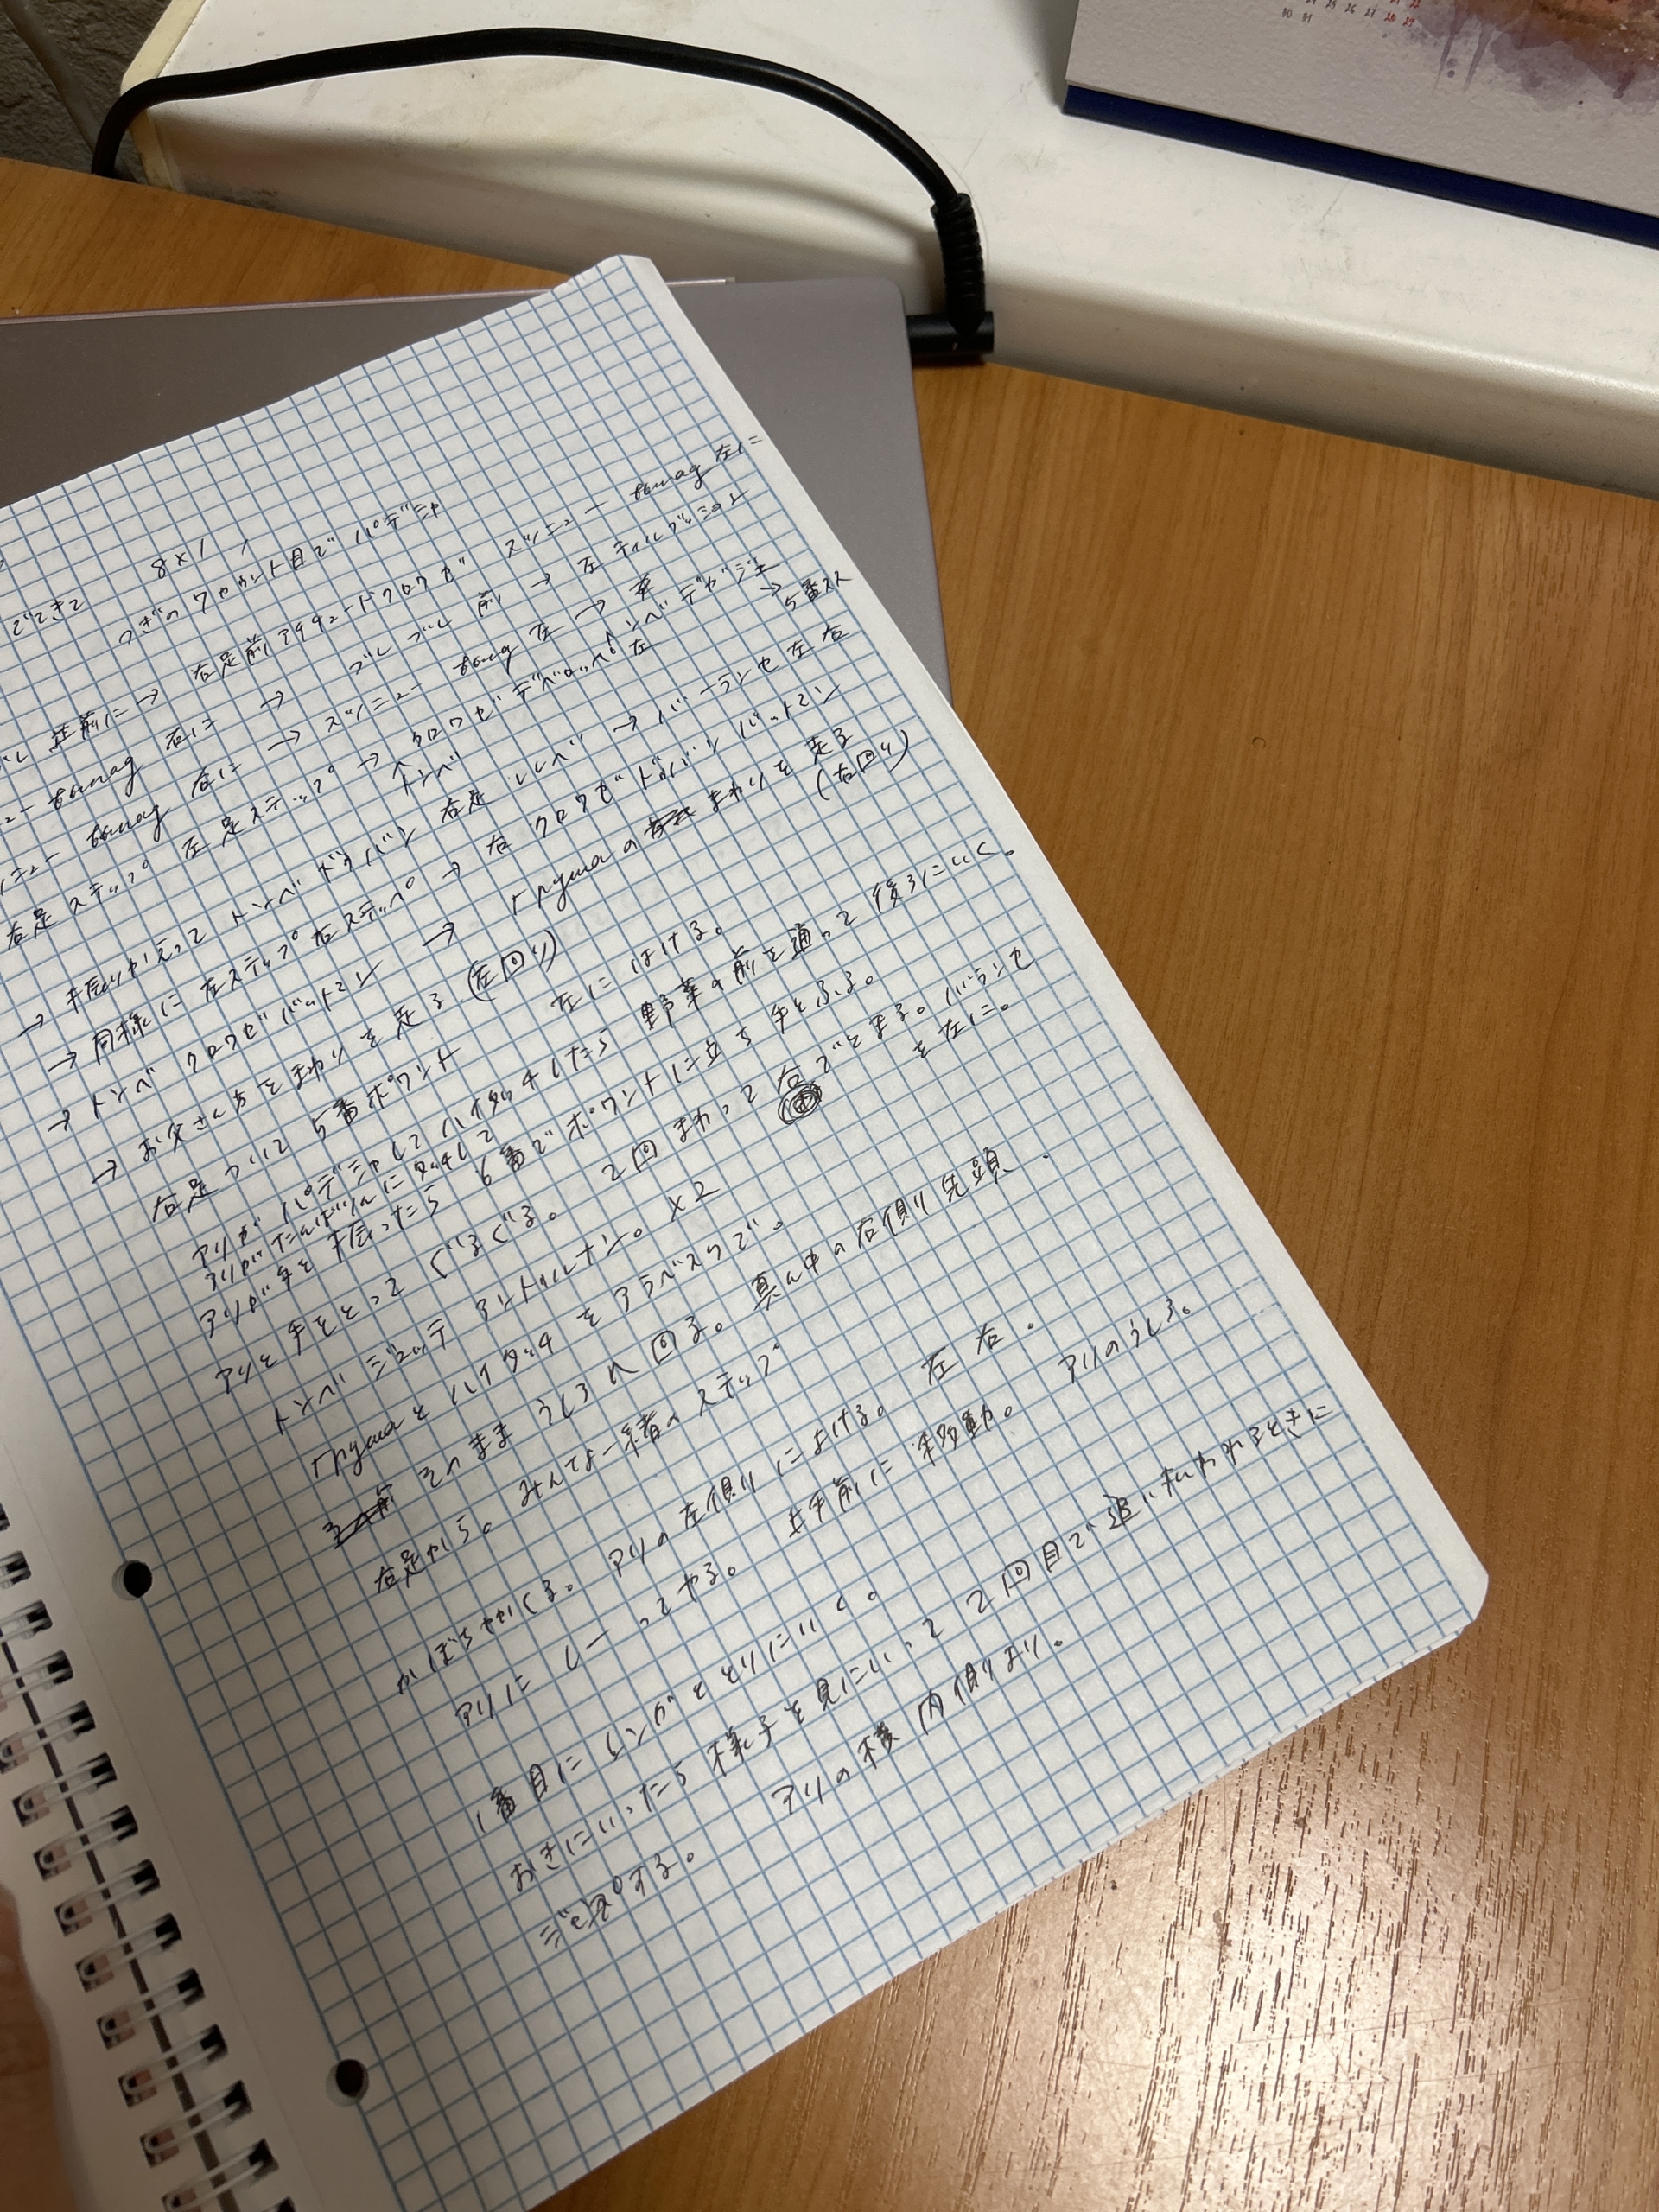 でてきて 8×1
つぎの7カウント目でパデシャ
前に→ 右足前アチチュードクロワゼ スツニュー 左に
右に → ブレ ブレ 前 → 左
右に → スツニュー 左 → 車
右足ステップ 左足ステップ → クロワゼデベロッペ 左
トンベ
→ 5番スス
→ 振りかえって トンベドゥバン 右足ルルベ → バランセ左右
→ 同様に 左ステップ 右ステップ → 右クロワゼドゥバンバットマン
→ トンベ クロワゼバットマン → грушаの まわりを走る
(右回り)
→ お父さん方をまわりを走る (左回り)
右足ついて5番ポワント 左にはける。
アリがパデシャしてハイタッチしたら 野菜の前を通って後ろにいく。
アリがたんばりんにタッチして
アリが手を振ったら 6番でポワントに立ち手をふる。
アリと手をとって ぐるぐる。 2回まわって右でとまる。バランセ
を左に。
トンベ ジュッテ アントゥルナン。×2
грушаとハイタッチをアラベスクで。
そのままうしろへ回る。真ん中の右側り先頭
右足から。みんな一緒のステップ
かぼちゃがくる。アリの左側りによける。左右。
アリに しーってやる。 上手前に移動。 アリのうしろ。
1番目にリンゴをとりにいく。
おきにいったら様子を見にいって 2回目で追いはらわれるときに
する。 アリの横 内側より。
30 31
24 25 26 27 28 29